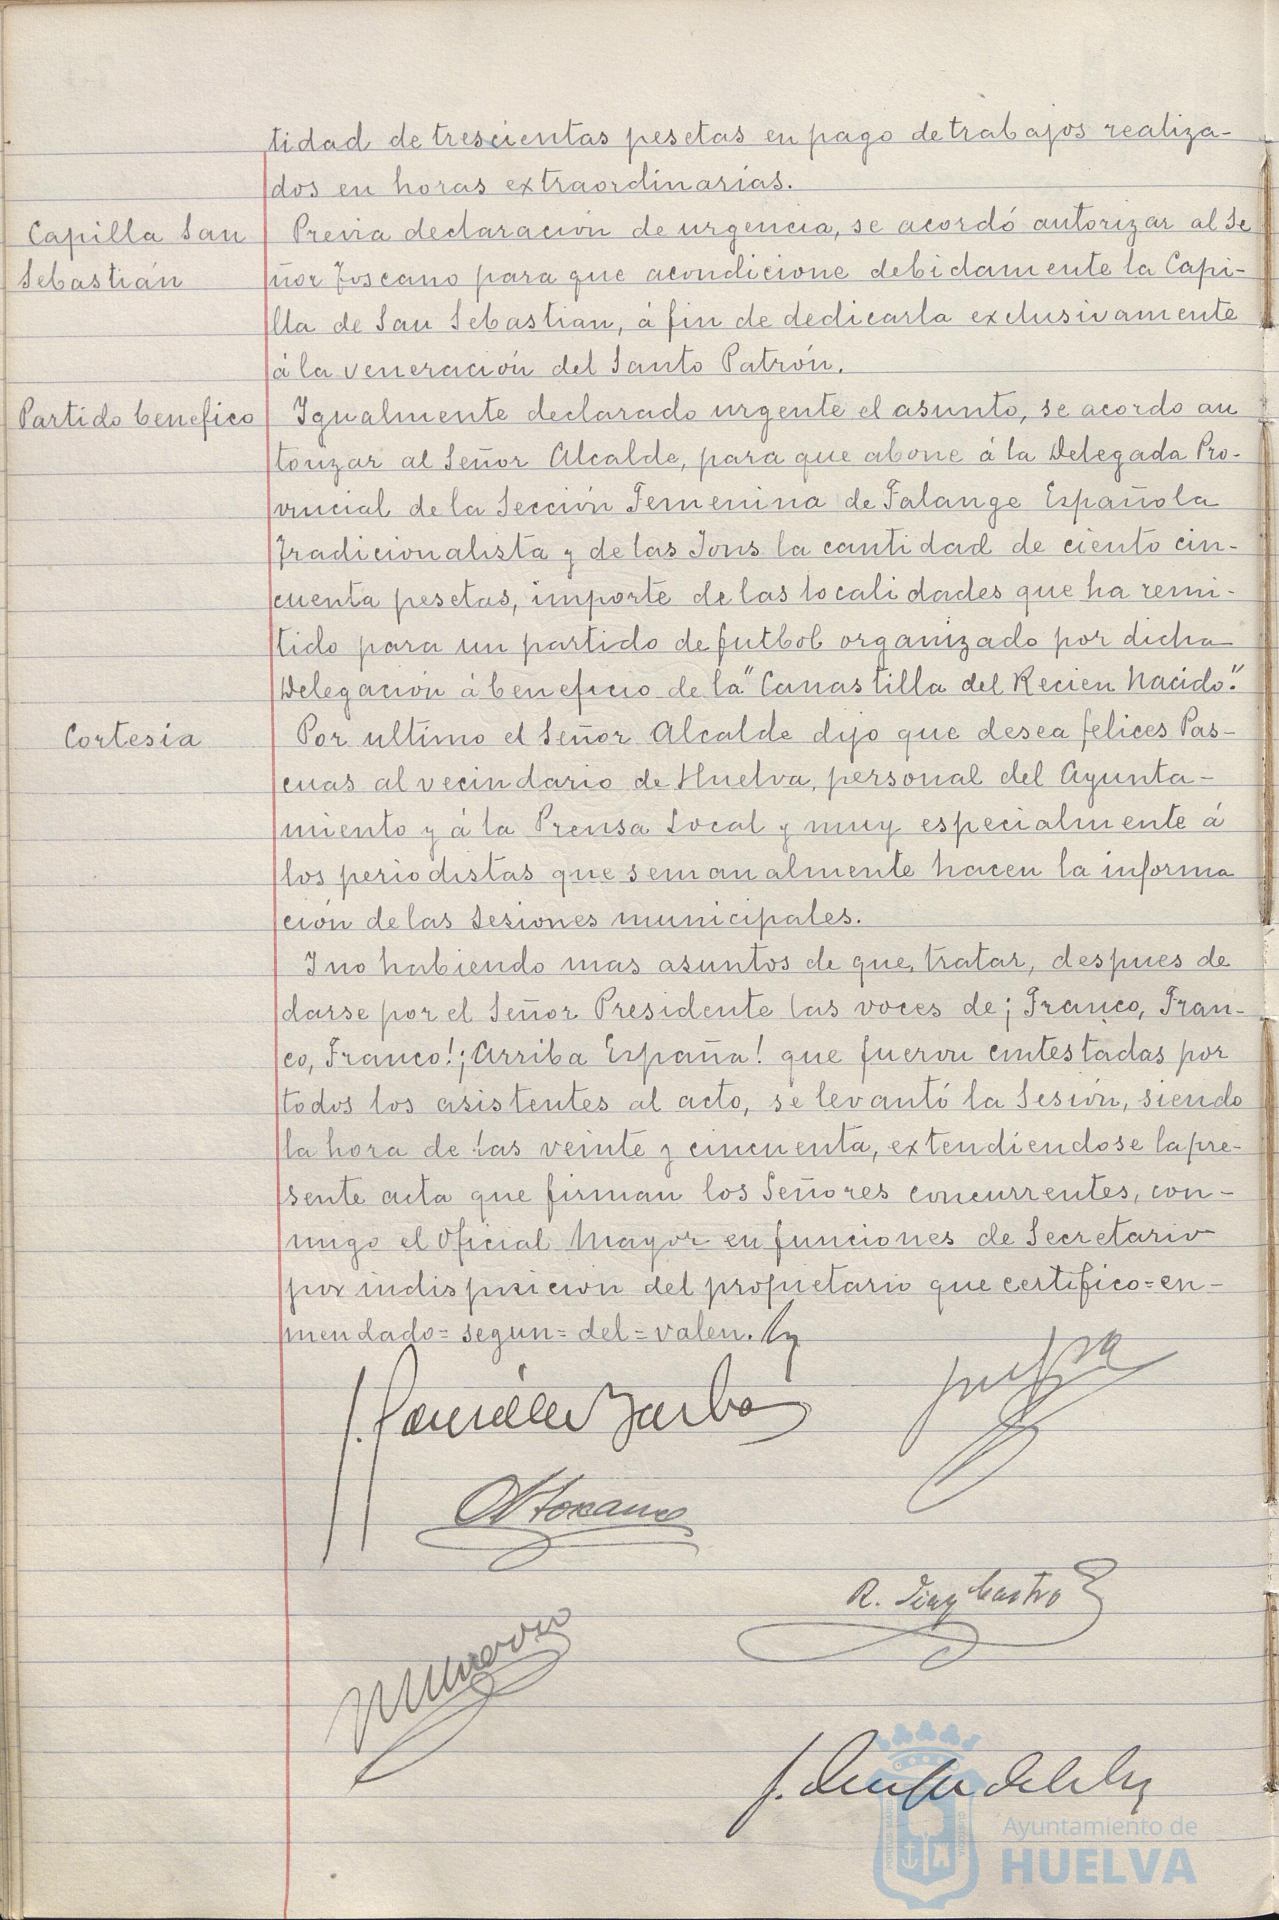 tidad de trescientas pesetas en pago de trabajos realiza-
dos en horas extraordinarias.
Capilla San
Sebastián
Previa declaración de urgencia, se acordó autorizar al Se
ñor Toscano para que acondicione debidamente la Capi-
lla de San Sebastian, á fin de dedicarla exclusivamente
á la veneración del Santo Patrón.
Partido benefico
Igualmente declarado urgente el asunto, se acordo au
torizar al Señor Alcalde, para que abone á la Delegada Pro-
vincial de la Sección Femenina de Falange Española
Tradicionalista y de las Jons la cantidad de ciento cin-
cuenta pesetas, importe de las localidades que ha remi-
tido para un partido de futbol organizado por dicha
Delegación á beneficio de la "Canastilla del Recien Nacido".
Cortesia
Por ultimo el Señor Alcalde dijo que desea felices Pas-
cuas al vecindario de Huelva, personal del Ayunta-
miento y á la Prensa Local y muy especialmente á
los periodistas que semanalmente hacen la informa
ción de las Sesiones municipales.
I no habiendo mas asuntos de que tratar, despues de
darse por el Señor Presidente las voces de ¡Franco, Fran-
co, Franco! ¡Arriba España! que fueron contestadas por
todos los asistentes al acto, se levantó la Sesión, siendo
la hora de las veinte y cincuenta, extendiendose la pre-
sente acta que firman los Señores concurrentes, con-
migo el Oficial Mayor en funciones de Secretario
por indisposicion del propietario que certifico=en-
mendado= segun= del= valen.
R. Diaz Castro
Ayuntamiento de
HUELVA